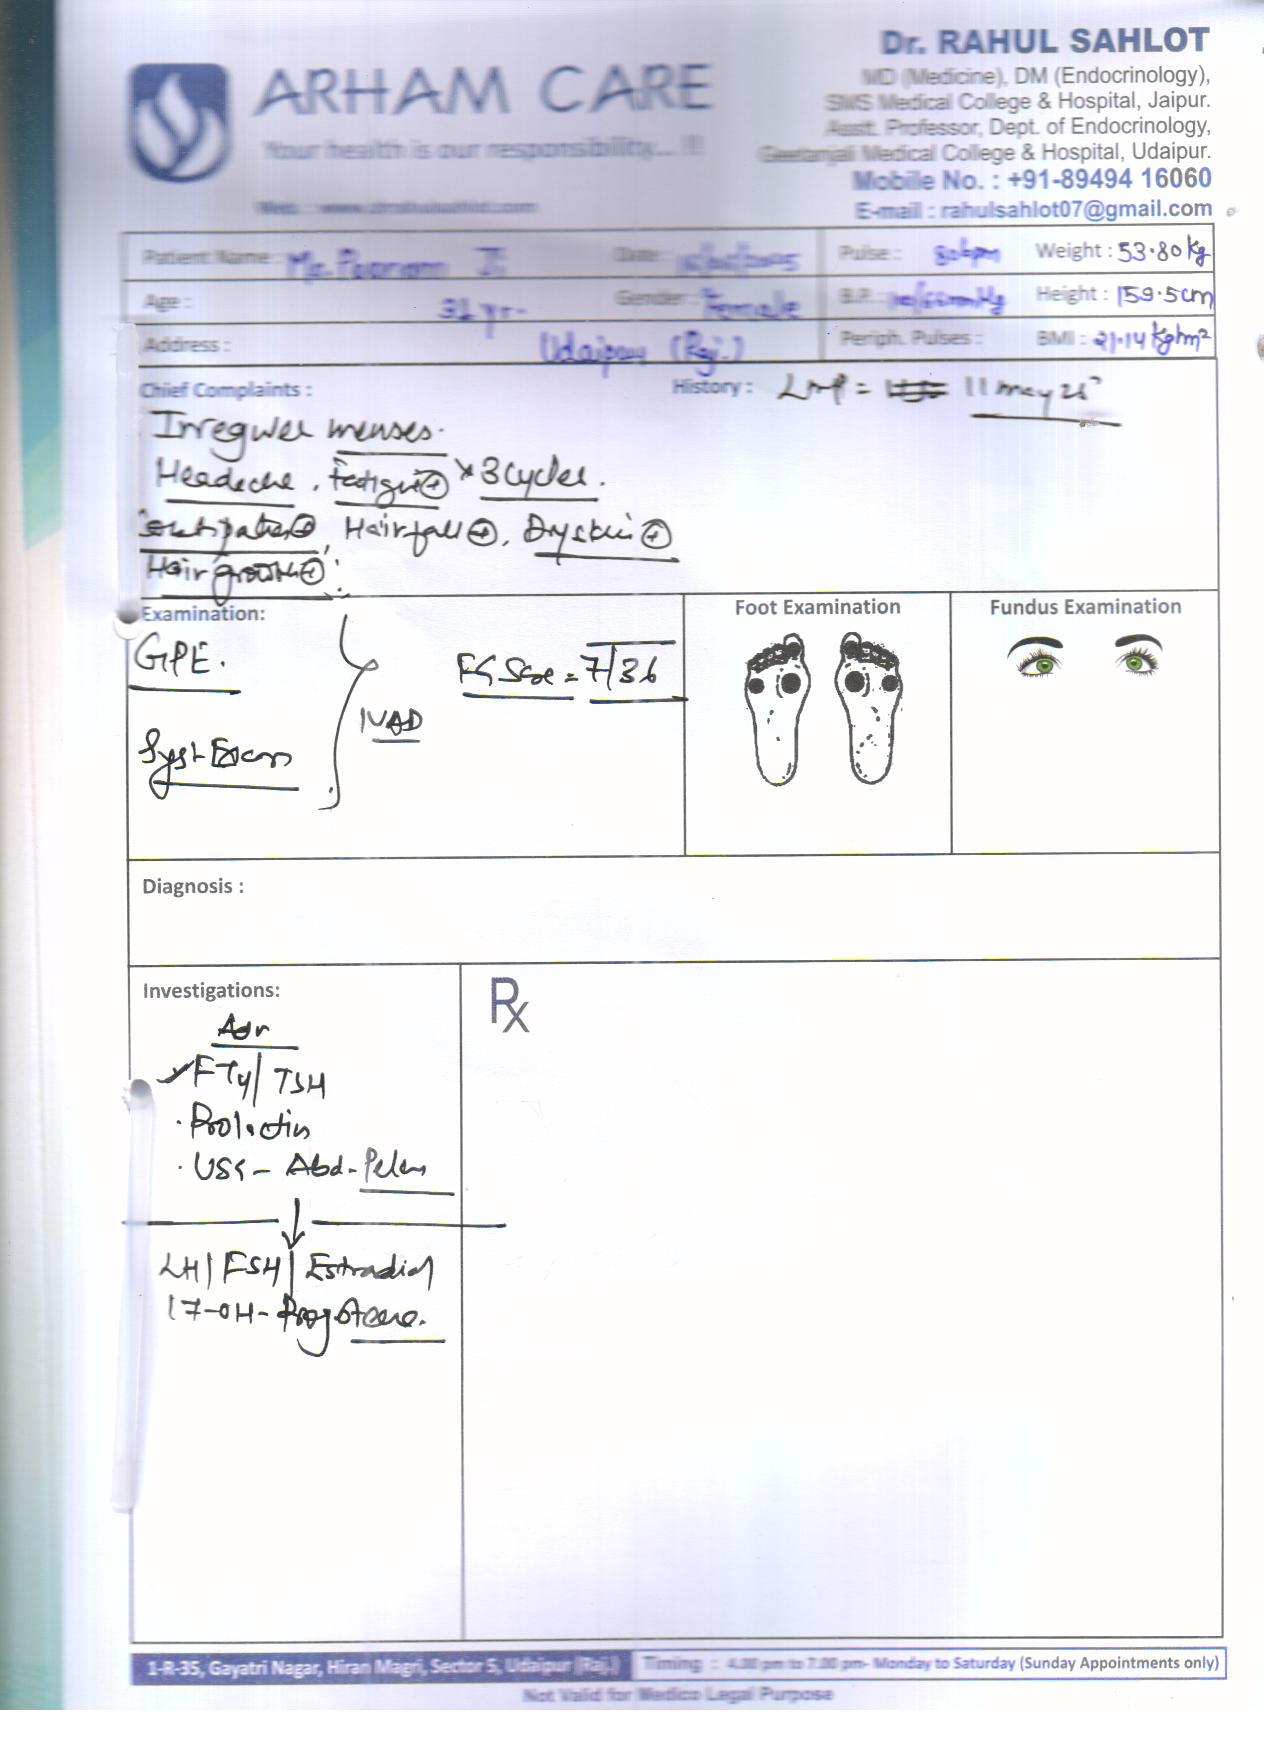 Dr. RAHUL SAHLOT
MD (Medicine), DM (Endocrinology),
SMS Medical College & Hospital, Jaipur.
Asstt. Professor, Dept. of Endocrinology,
Geetanjali Medical College & Hospital, Udaipur.
Mobile No. : +91-89494 16060
E-mail : rahulsahlot07@gmail.com
ARHAM CARE
Your health is our responsibility... !!!
Patient Name : Poonam Ji Date : Pulse : 80bpm Weight : 53.80 kg
Age : yr. Gender : Female B.P. : Height : 159.5cm
Address : Udaipur (Raj.) Periph. Pulses : BMI : 21.14 kg/m²
Chief Complaints : History : LMP = 11 may
Irreguler menses.
Headache, fatigue⊕ × 3 cycles.
Hairfall⊕, Dryskin⊕
Hair growth⊕
Examination: Foot Examination Fundus Examination
GPE.
FG Score = 7/36
NAD
Syst Exam
Diagnosis :
Investigations: Rx
Adv
FT4/ TSH
· Prolactin
· USG - Abd - Pelvis
LH/FSH/Estradiol
17-OH- Progesterone.
1-R-35, Gayatri Nagar, Hiran Magri, Sector 5, Udaipur (Raj.) Timing : 4.00 pm to 7.00 pm- Monday to Saturday (Sunday Appointments only)
Not Valid for Medico Legal Purpose